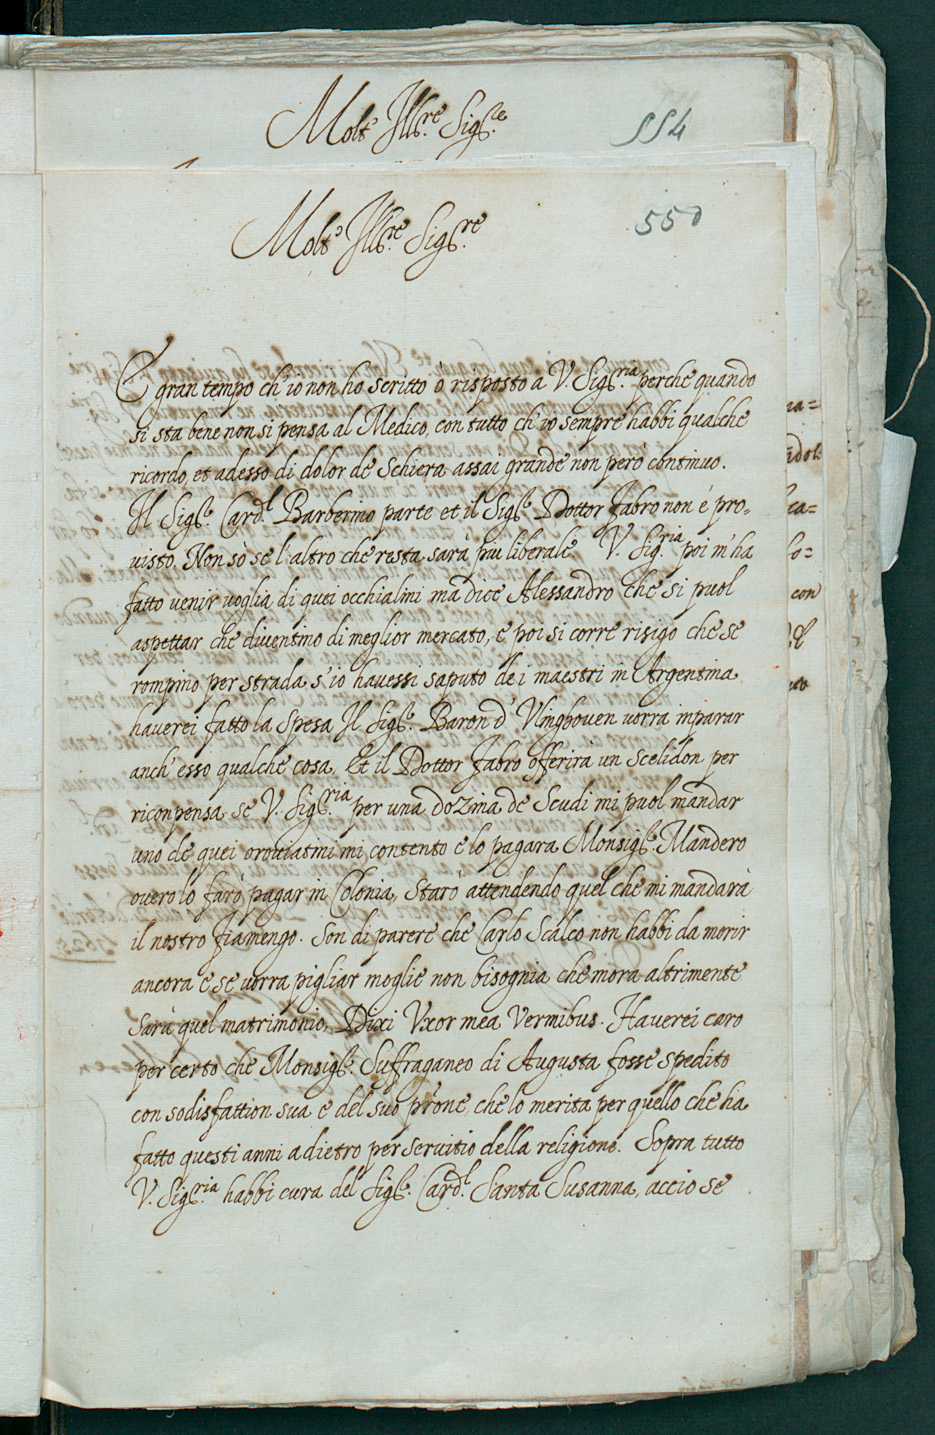 Molt' Ill.re Sig.re
554
Molt' Ill.re Sig.re
550
E gran tempo ch'io non ho scritto ò risposto a V. Sig.ria perche quando
si sta bene non si pensa al Medico, con tutto ch'io sempre habbi qualche
ricordo, et adesso di dolor de Schiera assai grande non però continuo.
Il Sig.r Card.l Barberino parte et il Sig.r Dottor Fabro non é pro=
uisto. Non sò se l'altro che resta sarà piu liberale. V. Sig.ria poi m'ha
fatto venir voglia di quei occhialini ma dice Alessandro che si puol
aspettar che diuentino di meglior mercato, e poi si corre risigo che se
rompino per strada s'io hauessi saputo de i maestri in Argentina
hauerei fatto la spesa Il Sig.r Baron d' Vlinghouen uorrà inparar
anch' esso qualche cosa, Et il Dottor Fabro offerirà un Scelidon per
riconpensa se V. Sig.ria per una dozina de Scudi mi puol mandar
uno de quei mi contento e lo pagara Monsig.r Mandero
ouero lo farò pagar in Colonia, Starò attendendo quel che mi mandarà
il nostro fiamengo. Son di parere che Carlo Scalco non habbi da morir
ancora e se uorra pigliar moglie non bisognia che mora altrimente
Sarà quel matrimonio, Dixi Vxor mea Vermibus. Hauerei caro
per certo che Monsig.r Suffraganeo di Augusta fosse spedito
con sodisfattion sua e del suo prone, che lo merita per quello che ha
fatto questi anni adietro per seruitio della religione. Sopra tutto
V. Sig.ria habbi cura del Sig.r Card.l Santa Susanna, accio se
na=
ndole
ca=
lo=
con